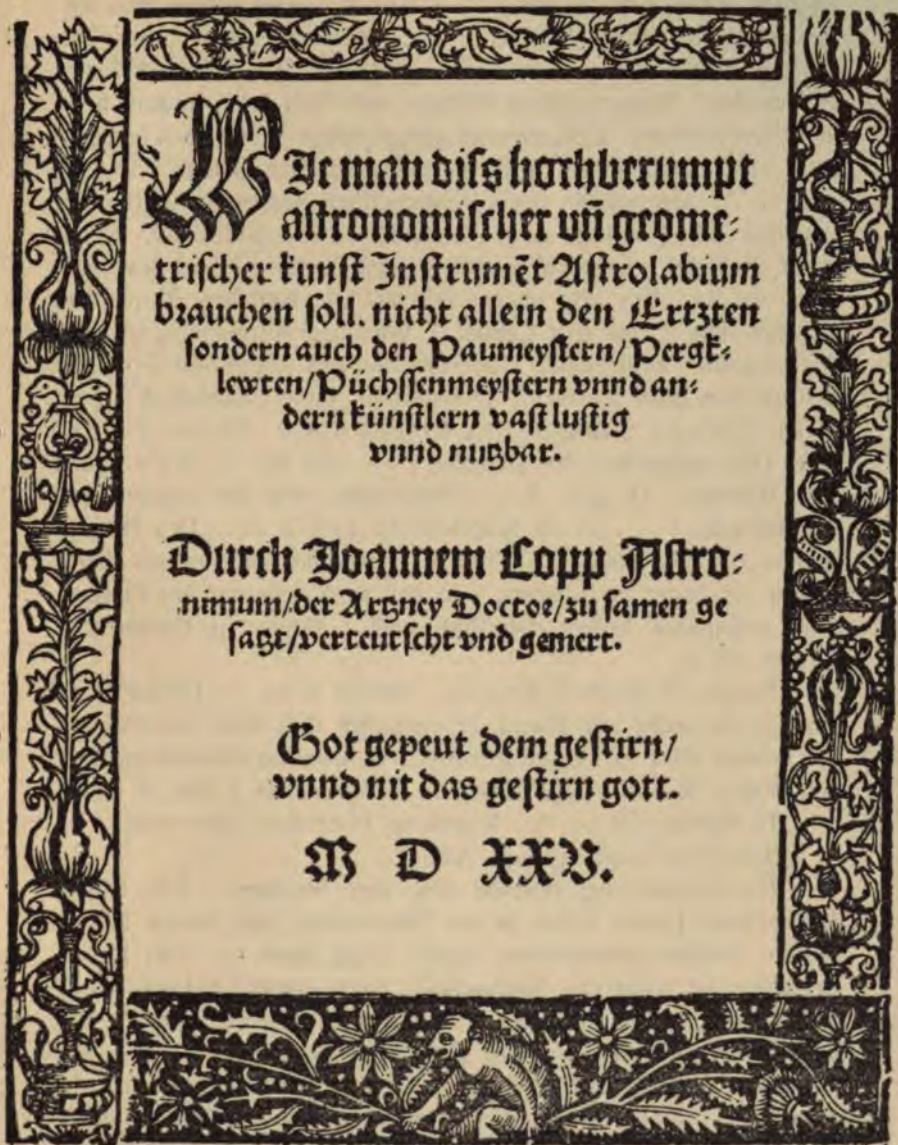 WIe man diſs hochberumpt
aſtronomiſcher vñ geome⸗
triſcher kunſt Inſtrumēt Aſtrolabium
brauchen ſoll. nicht allein den Ertzten
ſondern auch den Paumeyſtern/ Pergk⸗
lewten/ Püchſſenmeyſtern vnnd an⸗
dern künſtlern vaſt luſtig
vnnd nutzbar.
Durch Joannem Copp Aſtro⸗
nimum/ der Artzney Doctoꝛ/ zu ſamen ge
ſatzt/ verteutſcht vnd gemert.
Got gepeut dem geſtirn/
vnnd nit das geſtirn gott.
M D XXV.